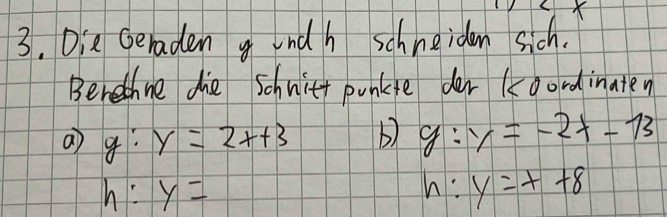 3. Die Geraden g und h schneiden sich.
Berechne die Schnittpunkte der Koordinaten
a) g: y = 2x+3 b) g: y = -2x - 13
h: y = h: y = x +8